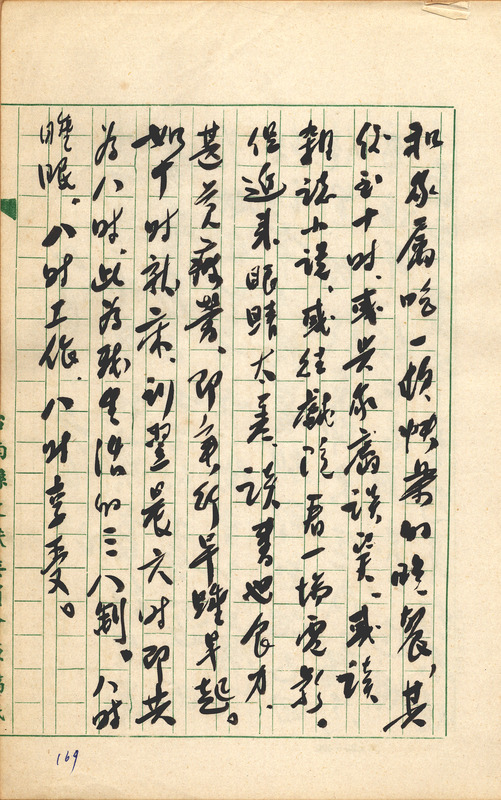 和家屬吃一頓快樂的晚餐,其
後到十時、或與家屬談笑、或讀
雜誌小說、或往戲院看一場電影。
但近來眼睛太差、讀書也食力、
甚覺疲勞、即實行早睡早起。
如十時就床、則翌晨六時即共
為八時、此為我生活的三八制。八時
睡眠、八時工作、八時享受。
169